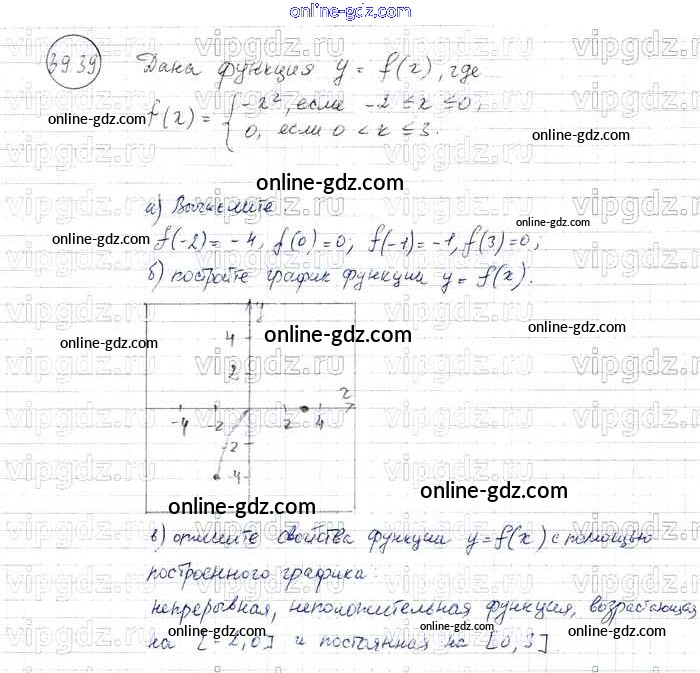 online-gdz.com
39.39 Дана функция y = f(x), где
f(x) = { -x², если -2 ≤ x ≤ 0,
0, если 0 < x ≤ 3.
online-gdz.com
online-gdz.com
online-gdz.com
а) Вычислите
online-gdz.com
f(-2) = -4, f(0) = 0, f(-1) = -1, f(3) = 0;
online-gdz.com
б) постройте график функции y = f(x).
y
4
2
x
-4 -2 2 4
-2
-4
online-gdz.com
online-gdz.com
online-gdz.com
online-gdz.com
online-gdz.com
в) опишите свойства функции y = f(x) с помощью
построенного графика.
непрерывная, неположительная функция, возрастающая
на [-2, 0] и постоянная на [0, 3].
online-gdz.com
online-gdz.com
vipgdz.ru